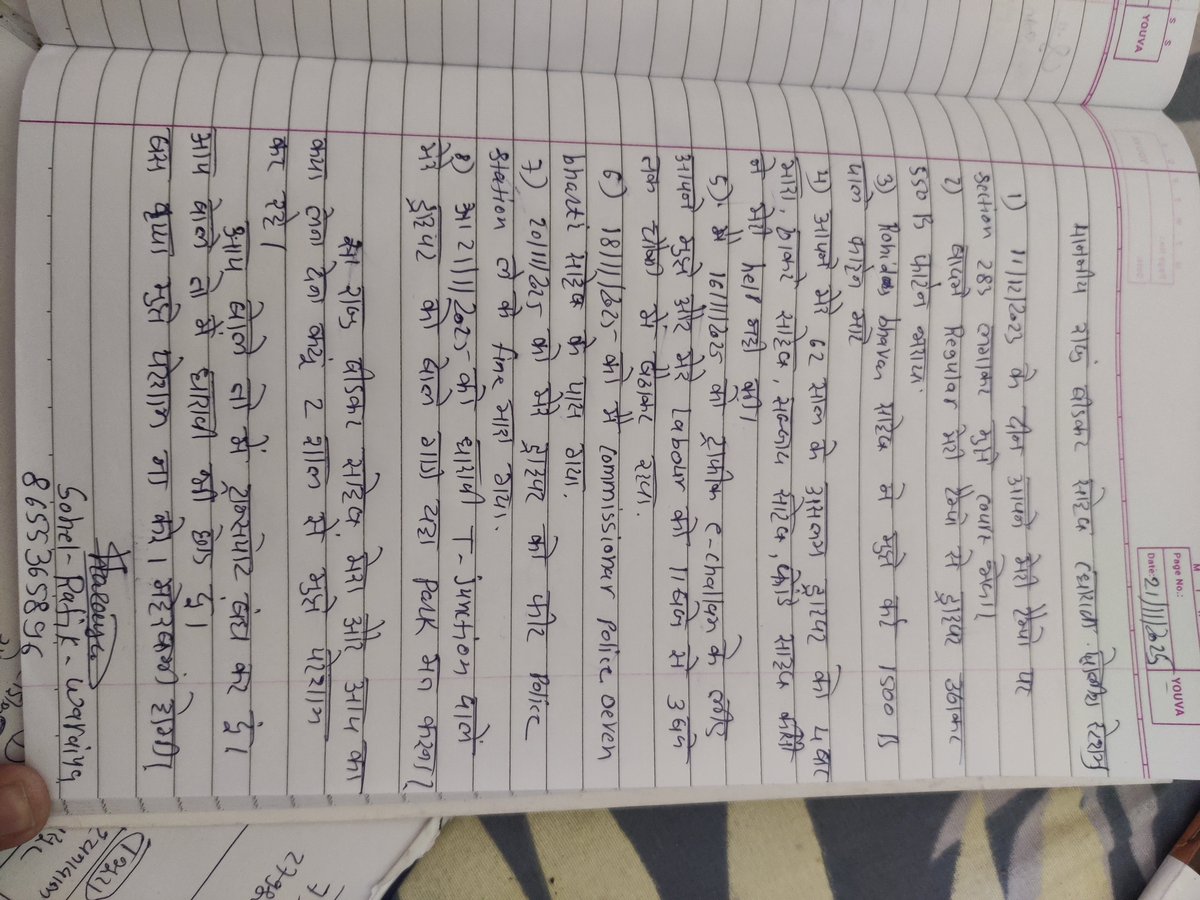 YOUVA
Page No.:
Date: 21/11/2025
YOUVA
माननीय राजु बीडकर साहब धारावी पोलीस स्टेशन
1) 11/12/2023 के दीन आपने मेरी टेम्पो पर
section 283 लगाकर मुझे court भेजा।
2) आपने Regular मेरी टेम्पो से ड्राइवर उठाकर
550 ₨ फाईन मारा
3) Rohidas bhavan साहब ने मुझे कोर्ट 1500 ₨
फाईन मारा
4) आपने मेरे 62 साल के असलम ड्राइवर को 4 बार
मारा, साहब, साहब, साहब कीसी
ने मेरी help नही की।
5) मैं 16/11/2025 को ट्रॅफीक e-challan के लीए
आपने मुझे और मेरे labour को 11 बजे से 3 बजे
तक चौकी में बैठाकर रखा.
6) 18/11/2025 को मैं commissionar police Deven
bharti साहब के पास गया.
7) 20/11/2025 को मेरे ड्राइवर को फीर Police
station ले के fine मारा गया.
8) आ 21/11/2025 को धारावी T-junction
मेरे ड्राइवर को बोले गाडी यहा Park मत करना,
राजु बीडकर साहब मेरा और आप का
क्या लेना देना क्यों 2 साल से मुझे परेशान
कर रहे।
आप बोले तो मैं ट्रान्सपोर्ट बंद कर दूं।
आप बोले तो मैं धारावी भी छोड दूं।
बस कृपा मुझे परेशान ना करे। मेहरबानी होगी।
Sohel-Rafik-waraiya
8655365896